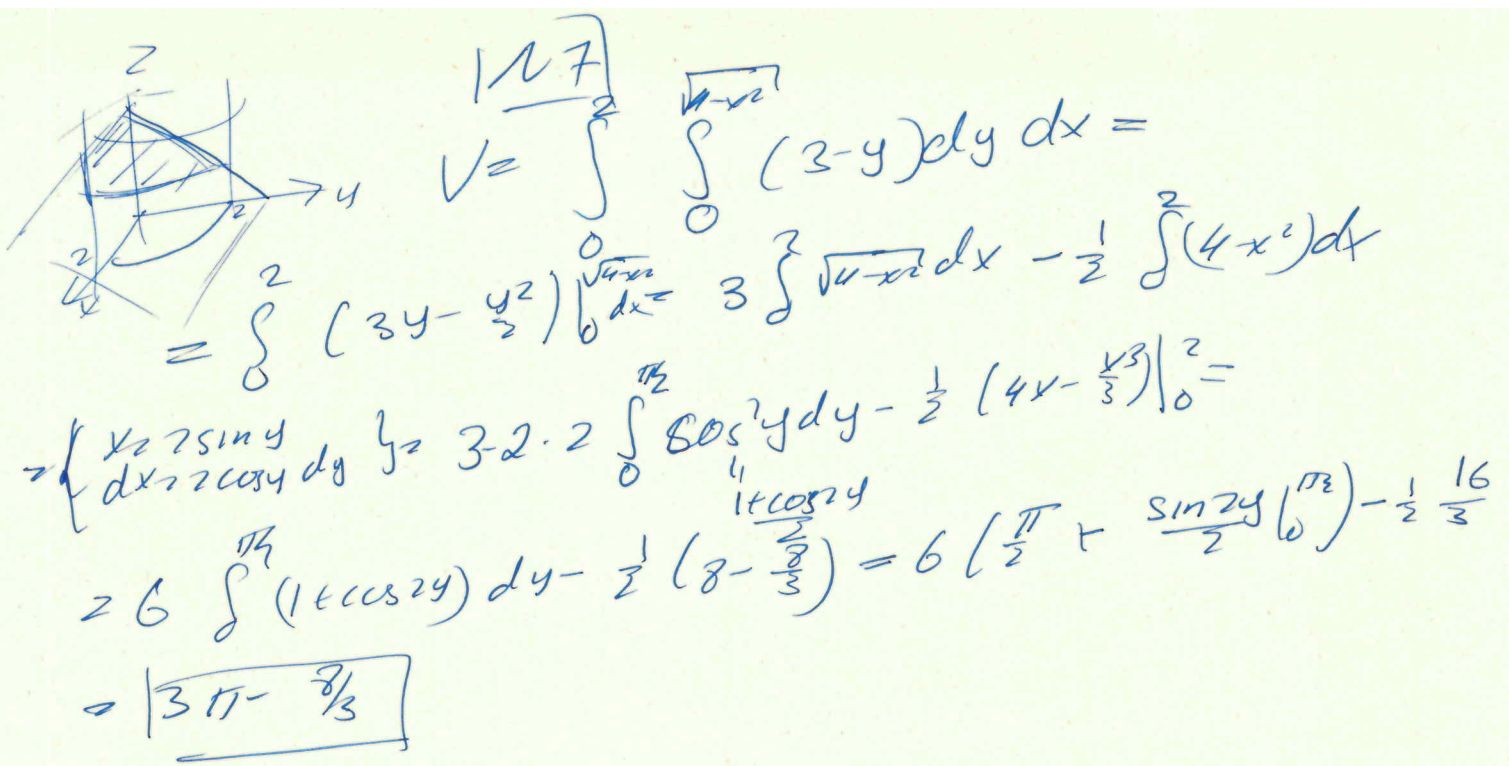 N7
z
y
2
2
x
V = \int_0^2 \int_0^{\sqrt{4-x^2}} (3-y) dy dx =
= \int_0^2 (3y - \frac{y^2}{2}) |_0^{\sqrt{4-x^2}} dx = 3 \int_0^2 \sqrt{4-x^2} dx - \frac{1}{2} \int_0^2 (4-x^2) dx
= { x = 2 sin y dx = 2 cos y dy } = 3·2·2 \int_0^{π/2} cos^2 y dy - \frac{1}{2} (4x - \frac{x^3}{3}) |_0^2 =
\frac{1+cos 2y}{2}
= 6 \int_0^{π/2} (1+cos 2y) dy - \frac{1}{2} (8 - \frac{8}{3}) = 6 (\frac{π}{2} + \frac{sin 2y}{2} |_0^{π/2}) - \frac{1}{2} \frac{16}{3}
= 3π - 8/3